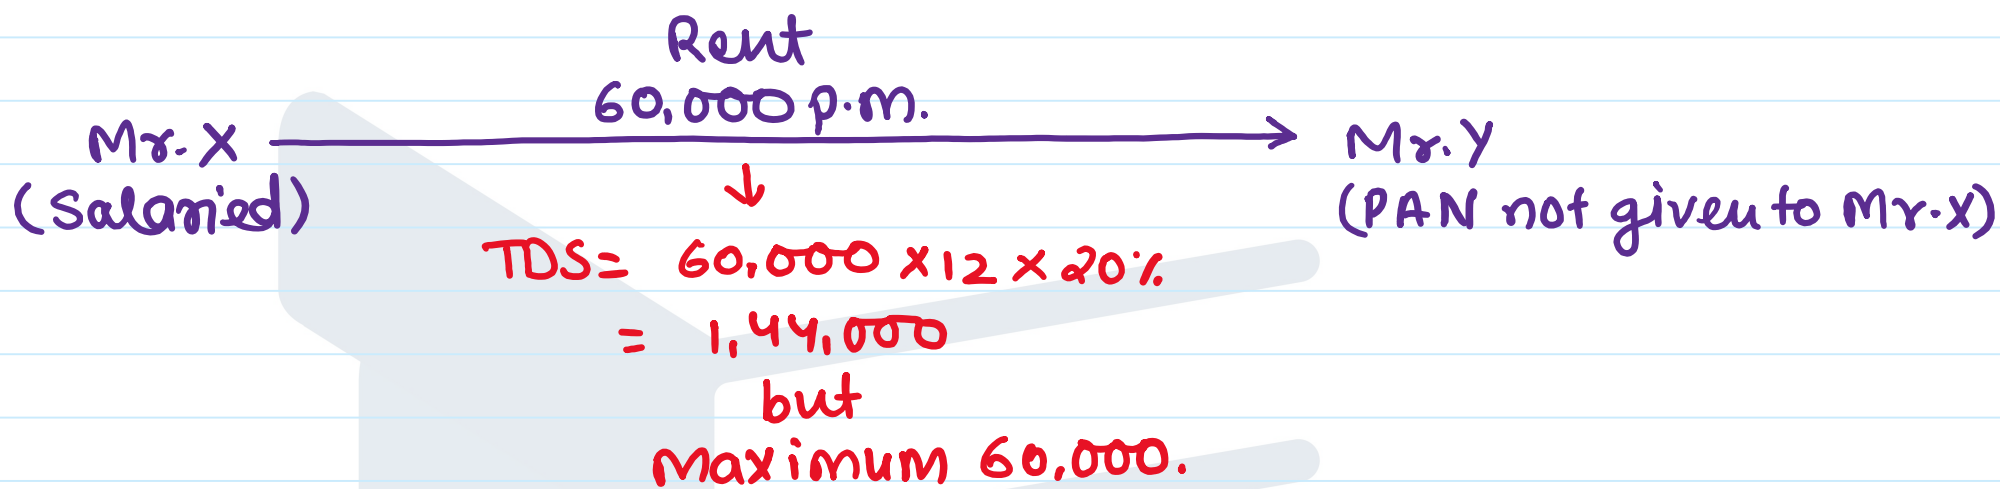 Rent
60,000 p.m.
Mr. X
Mr. Y
(Salaried)
(PAN not given to Mr. X)
TDS = 60,000 × 12 × 20%
= 1,44,000
but
Maximum 60,000.